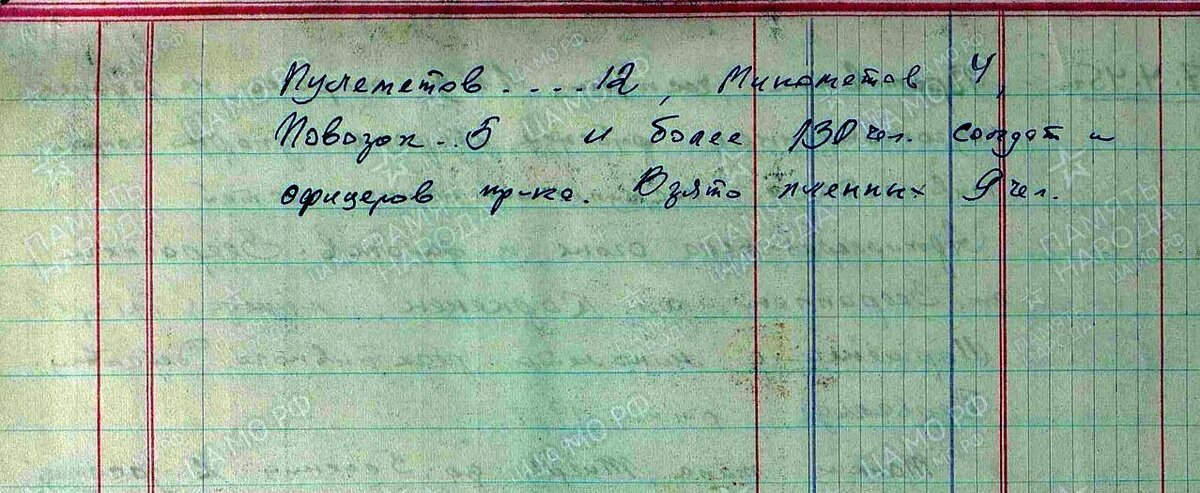 Пулеметов ....12, Минометов 4,
Повозок ..5 и более 130 чел. солдат и
офицеров пр-ка. Взято пленных 9 чел.